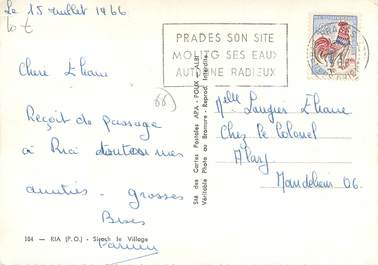 Le 15 Juillet 1966
Chere Eliane
Reçoit de passage
à Ria doutou mes
amitiés - grosses
Bises
104 — RIA (P.O.) - Sirach le Village
Sté des Cartes Postales APA - POUX - ALBI
Véritable Photo au Bromure - Reprod. Interdite
PRADES SON SITE
MOLITG SES EAUX
AUTOMNE RADIEUX
Melle Laugier Eliane
Chez le Colonel
Alary
Mandelieu 06.